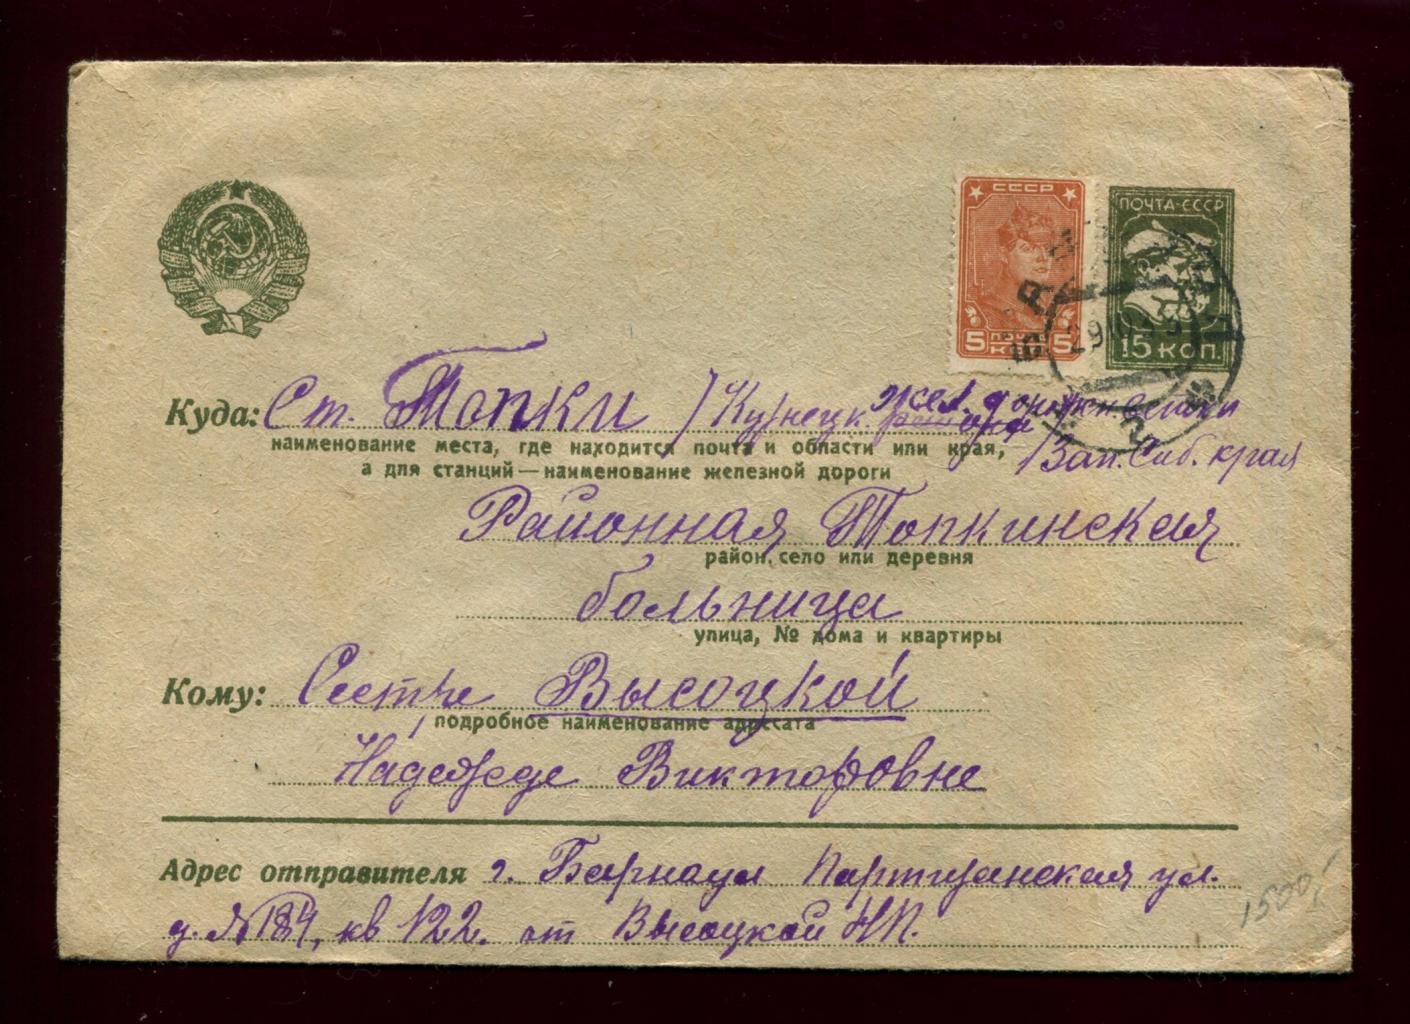 СССР
ПОЧТА-СССР
5 ПОЧТА 5
КОП
15 КОП.
Куда: Ст. Топки /Кузнецк жел. дор.
наименование места, где находится почта и области или края,
/Зап. Сиб. края
а для станций—наименование железной дороги
Районная Топкинская
район, село или деревня
больница
улица, № дома и квартиры
Кому: Сестре Высоцкой
подробное наименование адресата
Надежде Викторовне
Адрес отправителя г. Барнаул Партизанская ул.
д. № 184, кв 122. от Высоцкой Н.П.
1500,-